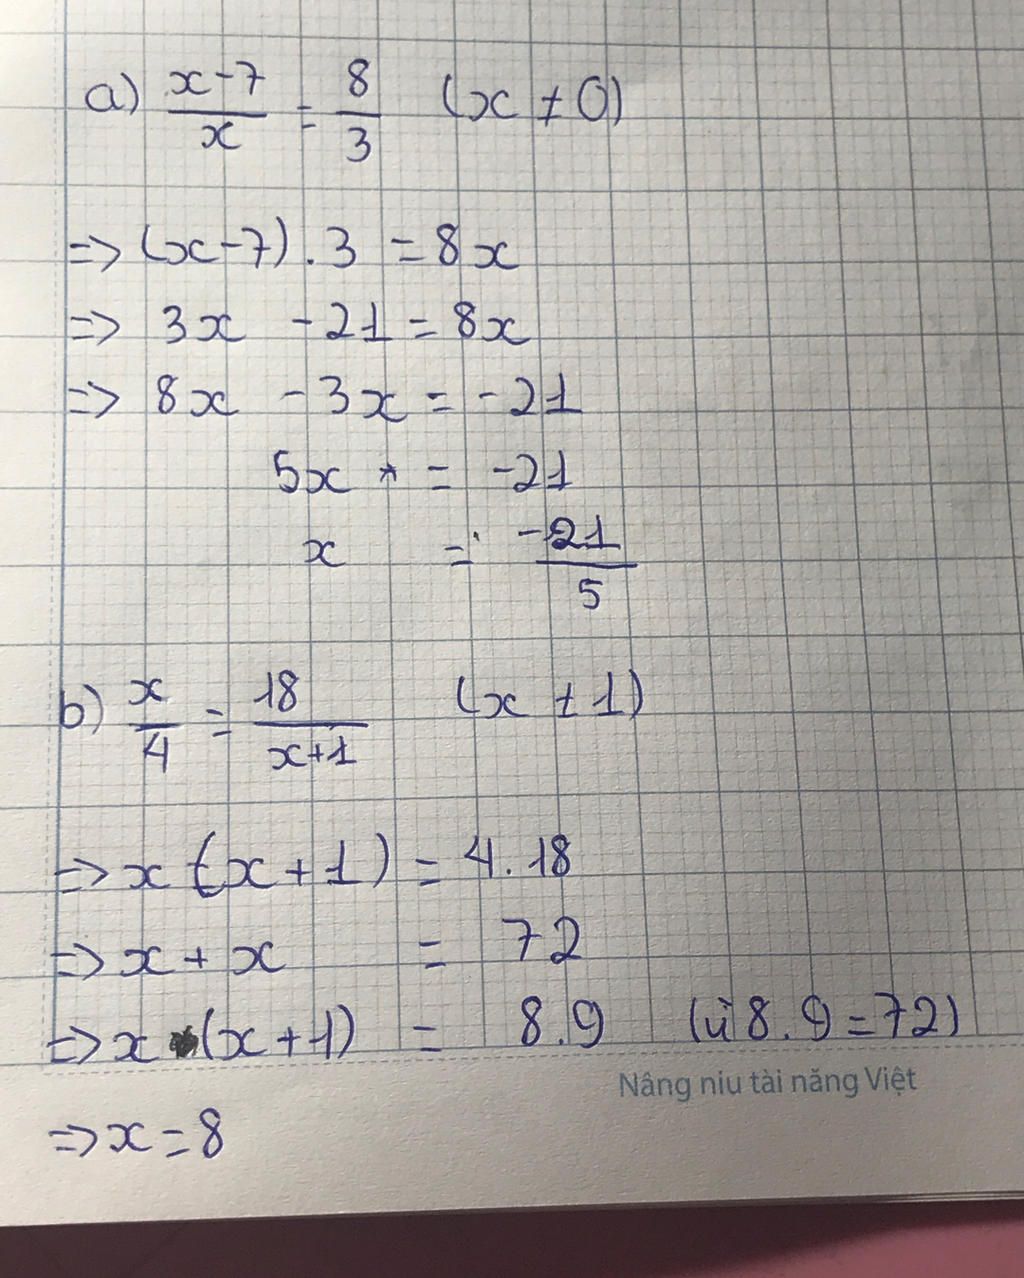 a) \frac{x-7}{x} = \frac{8}{3} (x ≠ 0)
=> (x-7) . 3 = 8x
=> 3x - 21 = 8x
=> 8x - 3x = -21
5x = -21
x = \frac{-21}{5}
b) \frac{x}{4} = \frac{18}{x+1} (x ≠ 1)
=> x (x + 1) = 4. 18
=> x + x = 72
=> x (x + 1) = 8.9 (vì 8.9=72)
Nâng niu tài năng Việt
=> x = 8